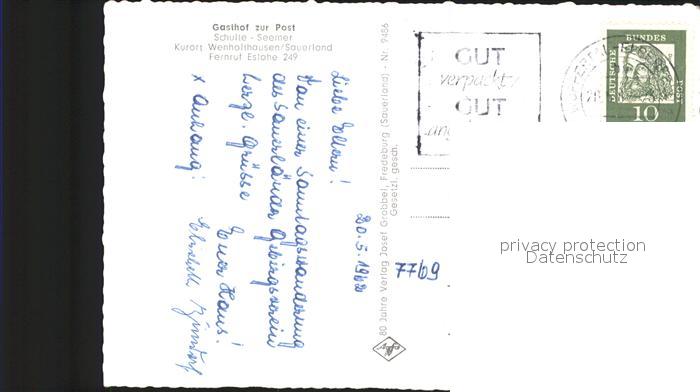 Gasthof zur Post
Schulte - Seemer
Kurort Wenholthausen/Sauerland
Fernruf Eslohe 249
20.5.1962
Liebe Eltern!
Von einer Sonntagswanderung
des Sauerländer Gebirgsverein
herzl. Grüsse
Euer Hans!
x Anhang:
Elisabeth
80 Jahre Verlag Josef Grobbel, Fredeburg (Sauerland) - Nr. 9486
Gesetzl. gesch.
7769
GUT
verpackt
GUT
DEUTSCHE BUNDESPOST
10
privacy protection
Datenschutz